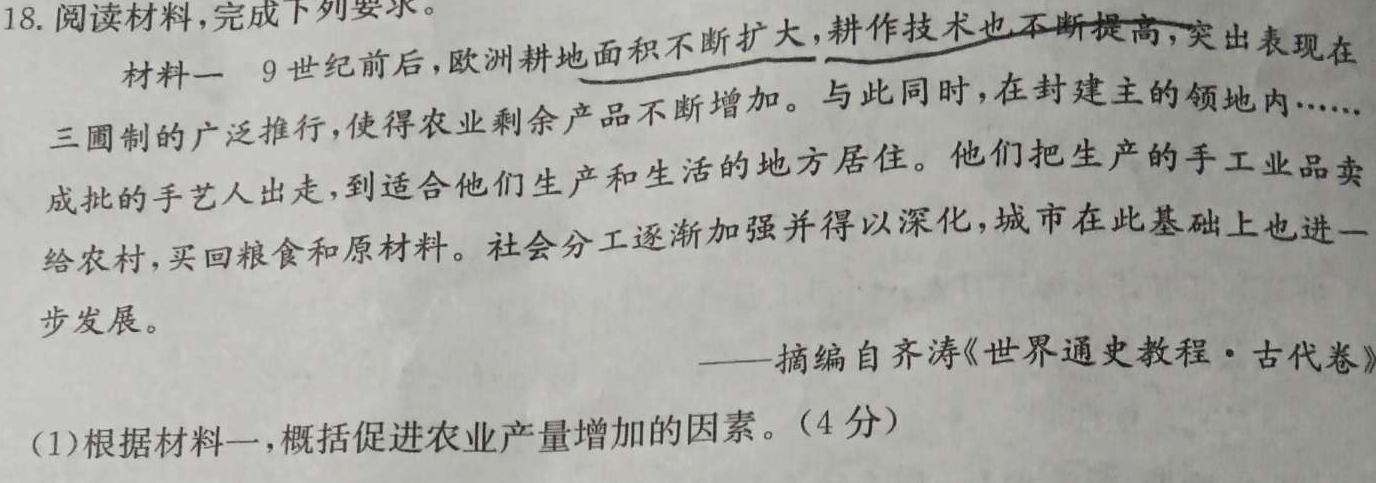 18. 阅读材料,完成下列要求。
材料一 9世纪前后,欧洲耕地面积不断扩大,耕作技术也不断提高,突出表现在
三圃制的广泛推行,使得农业剩余产品不断增加。与此同时,在封建主的领地内……
成批的手艺人出走,到适合他们生产和生活的地方居住。他们把生产的手工业品卖
给农村,买回粮食和原材料。社会分工逐渐加强并得以深化,城市在此基础上也进一
步发展。
——摘编自齐涛《世界通史教程·古代卷》
(1)根据材料一,概括促进农业产量增加的因素。(4分)